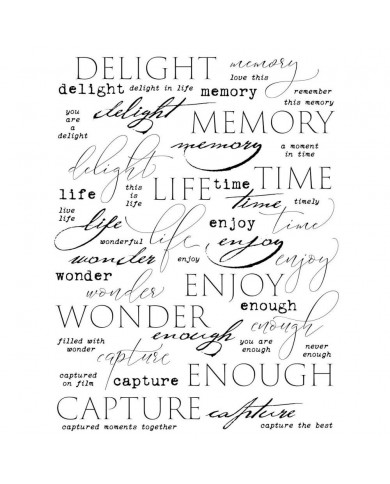 DELIGHT memory
love this
delight delight in life memory remember
this memory
you are
a
delight
delight
MEMORY
memory
a moment
in time
delight
life this
is
life
LIFE time TIME
time timely
live
life
life
enjoy time
wonderful life enjoy
wonder enjoy enjoy
wonder
wonder ENJOY
enough
WONDER enough
enough
filled with
wonder
you are
enough
never
enough
capture
captured
on film
capture ENOUGH
CAPTURE capture
captured moments together capture the best